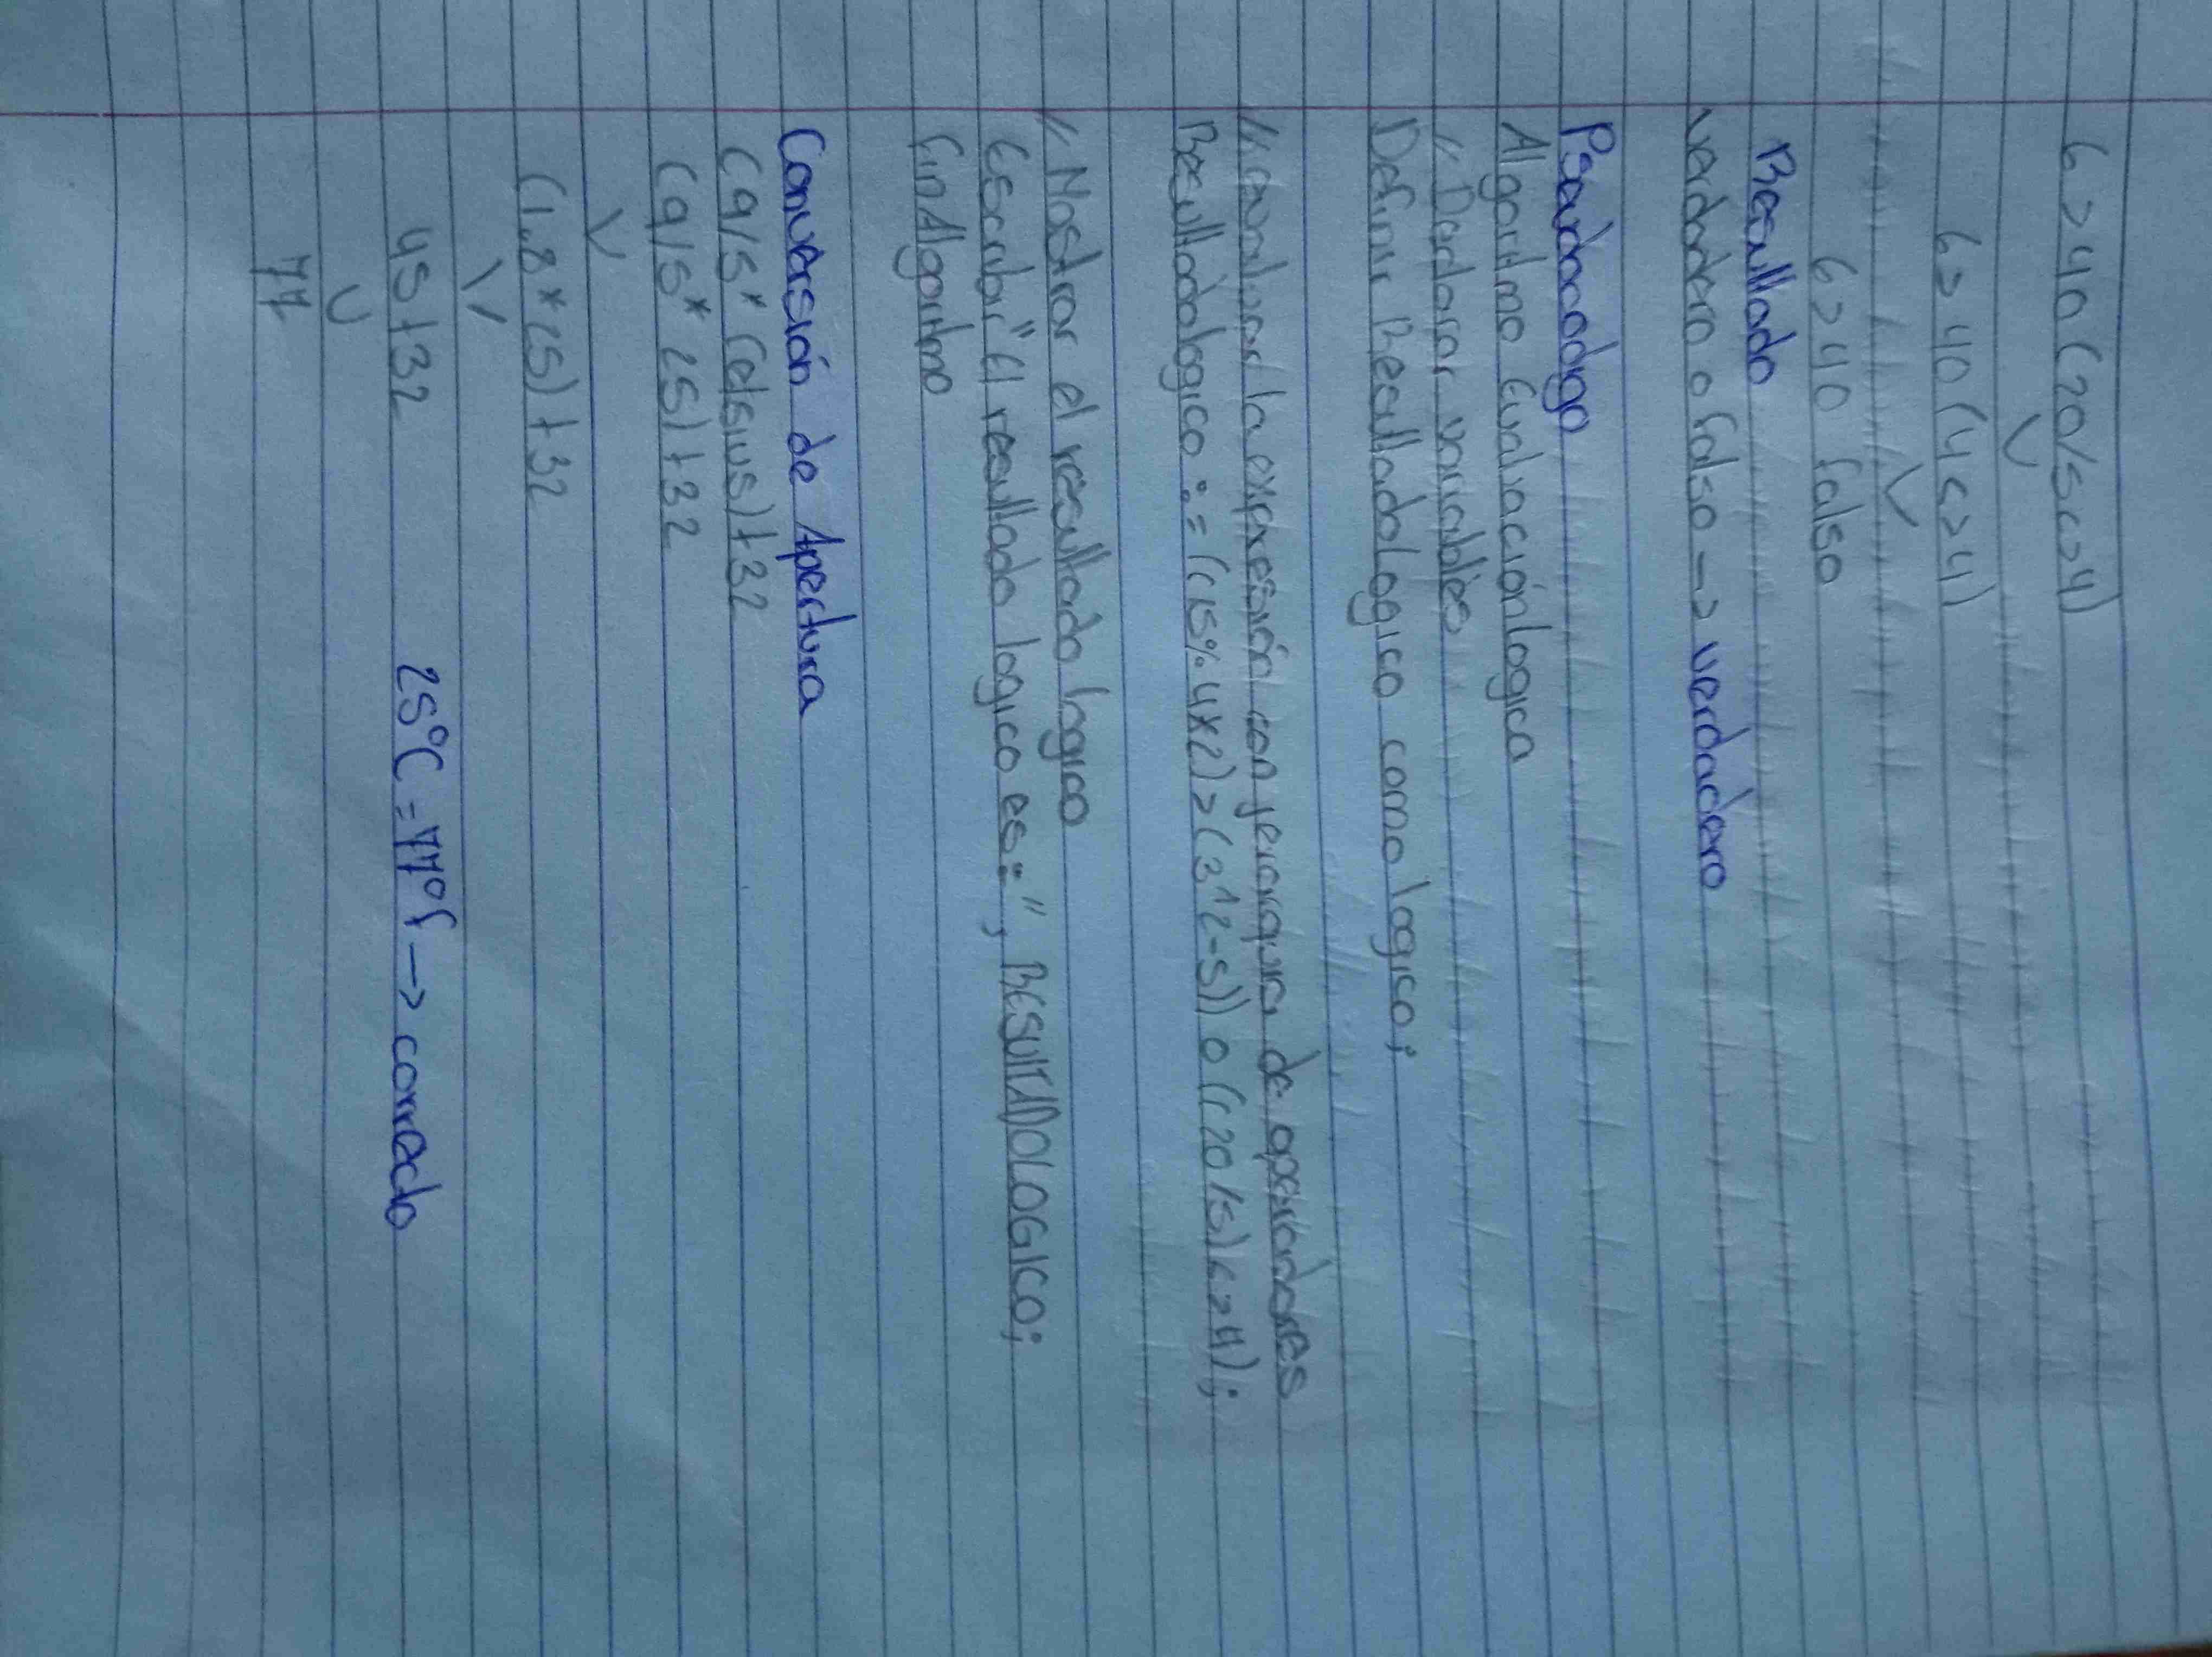 6>40(20/5<>4)
6>40(4<>4)
6>40 falso
Resultado
verdadero o falso -> verdadero
Pseudocodigo
Algoritmo Evaluaciónlogica
// Declarar variables
Definir Resultadologico como logico;
// evaluar la expresión con jerarquia de operadores
Resultadologico := ((15%4*2)>(3^2-5)) o ((20/5)<>4);
// Mostrar el resultado logico
Escribir "El resultado logico es:", RESULTADOLOGICO;
FinAlgoritmo
Conversión de Apertura
(9/5* Celsius)+32
(9/5* 25)+32
(1.8*25)+32
45+32
25°C = 77°F -> correcto
77